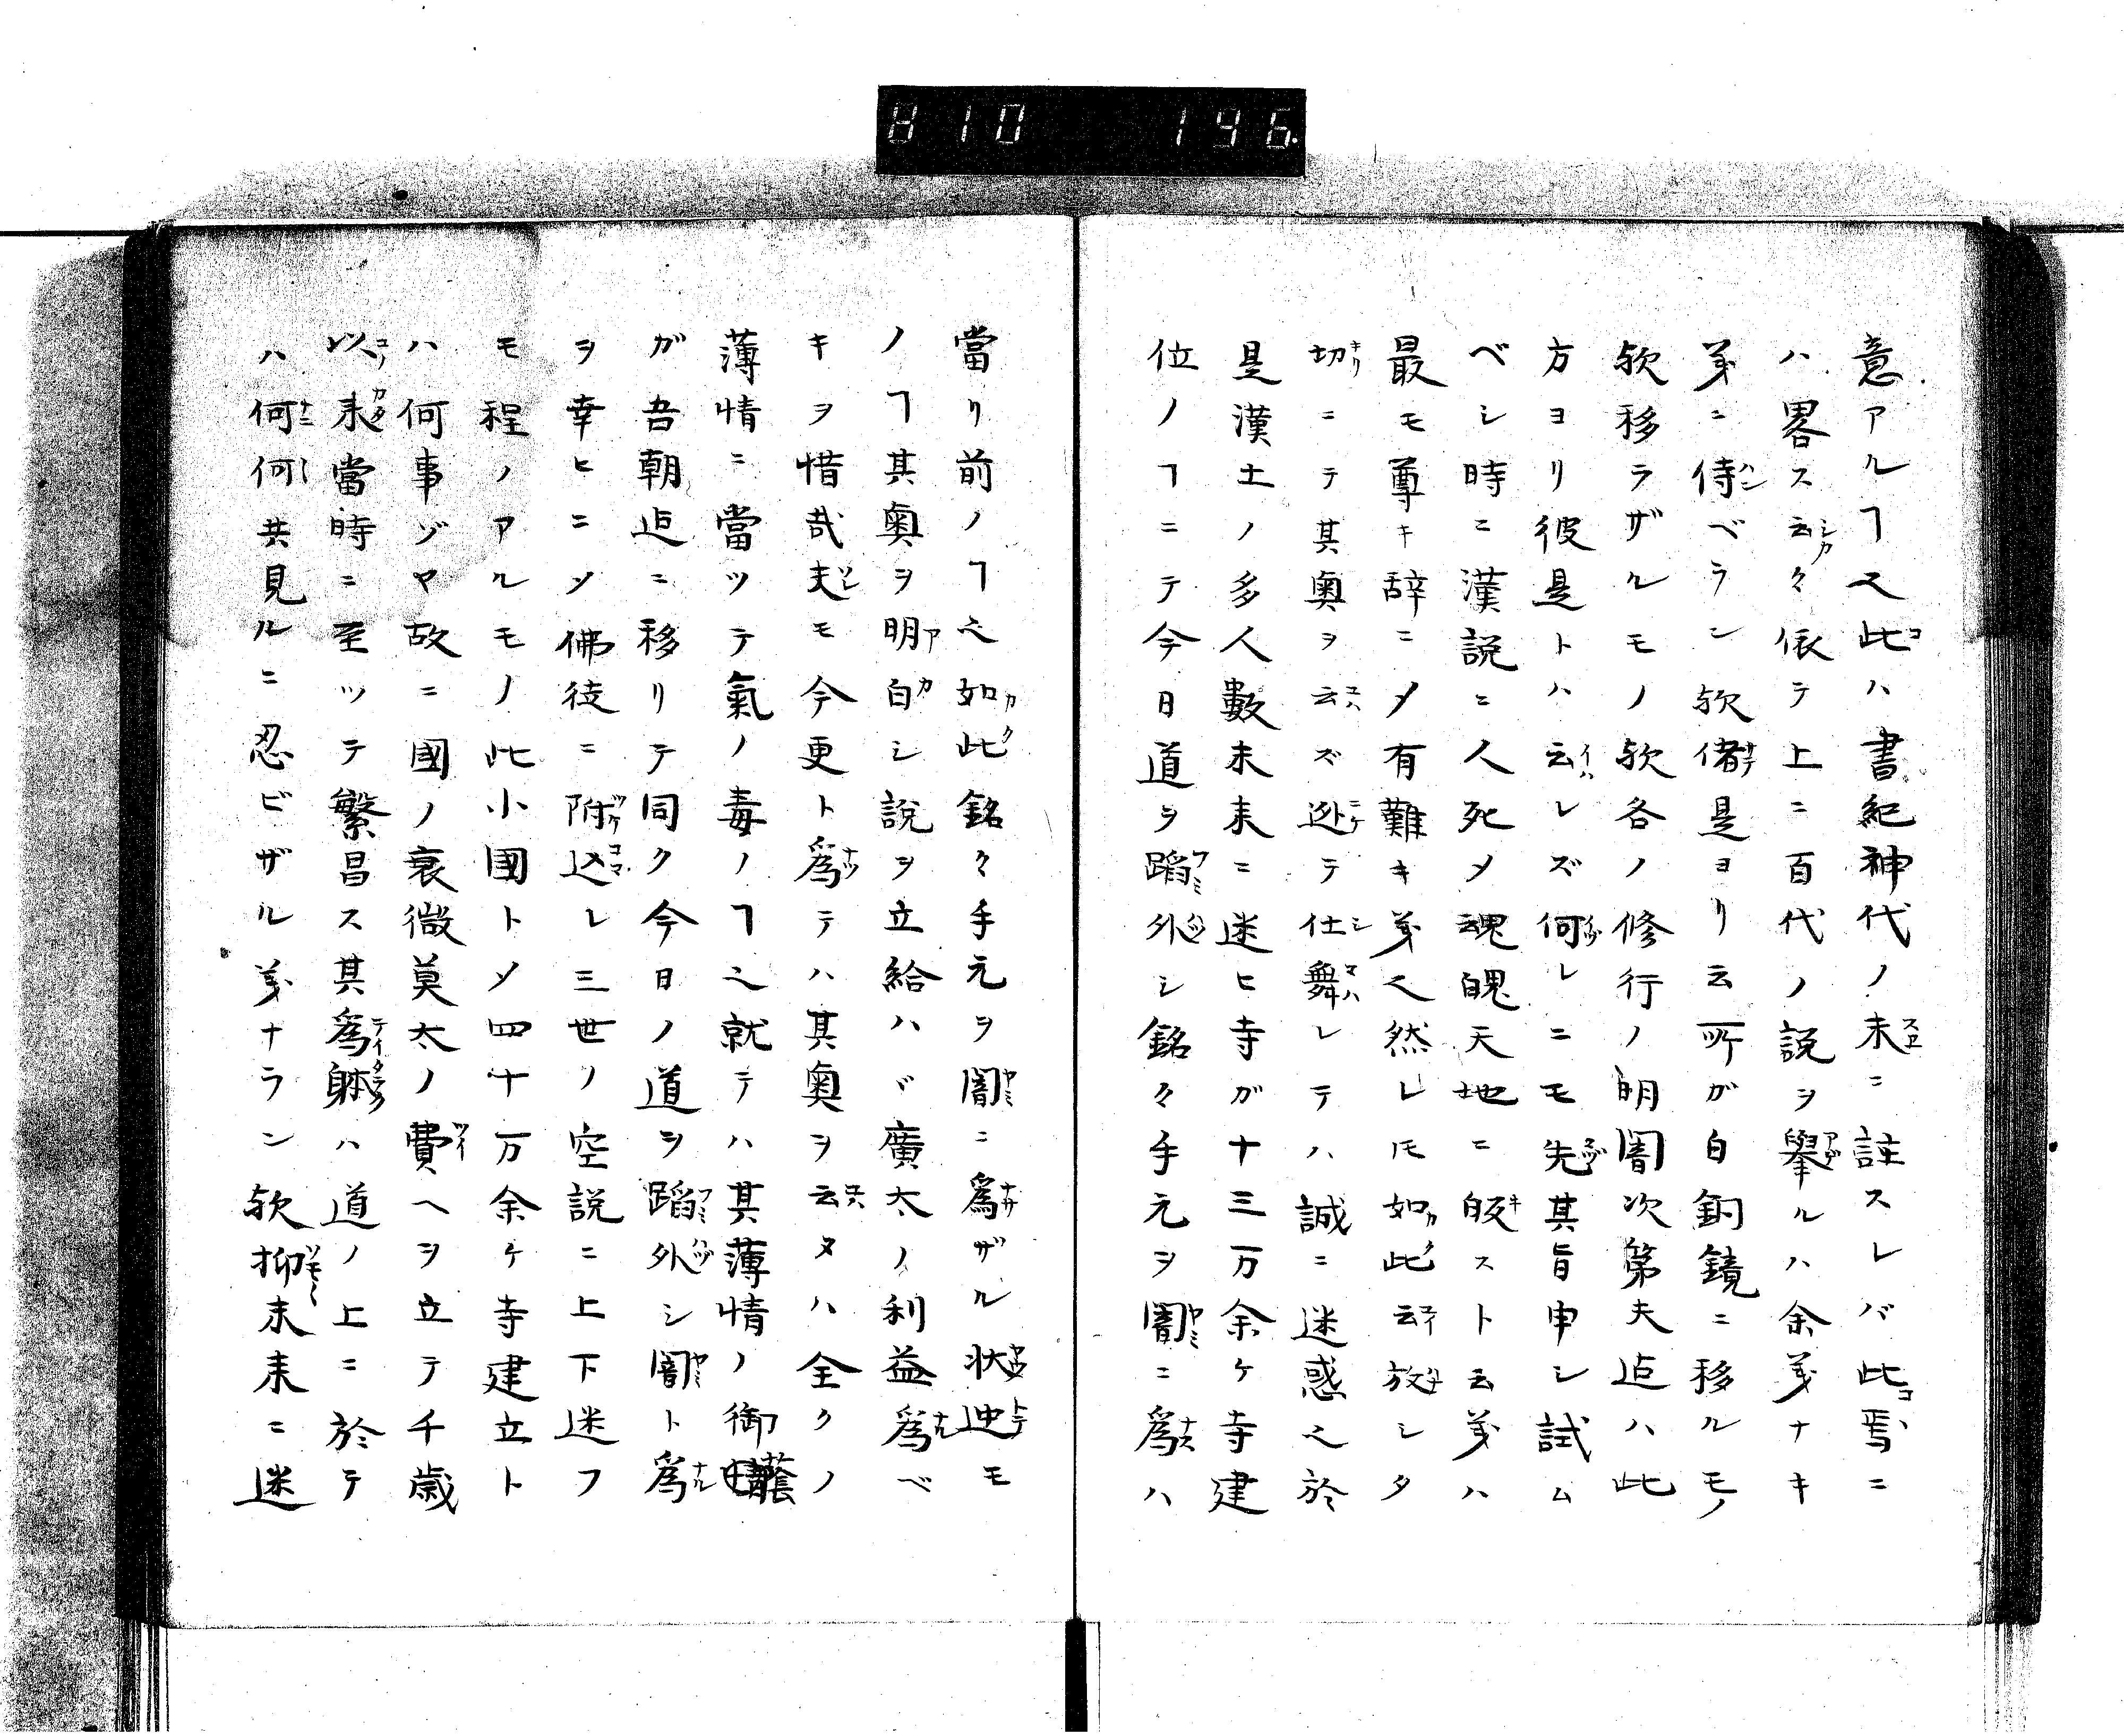 810 196.
意アルヿ之此ハ書紀神代ノ末ニ註スレバ此焉ニ
ハ畧ス云々依テ上ニ百代ノ説ヲ舉ルハ余義ナキ
義ニ侍ベラン欤偖是ヨリ云所ガ白銅鏡ニ移ルモノ
欤移ラザルモノ欤各ノ修行ノ明闇次第夫迠ハ此
方ヨリ彼是トハ云レズ何レニモ先其旨申シ試ム
ベシ時ニ漢説ニ人死〆魂魄天地ニ皈スト云義ハ
最モ尊キ辞ニ〆有難キ義之然レ𪜈如此云放シタ
切ニテ其奥ヲ云ズ迯テ仕舞レテハ誠ニ迷惑之於
是漢土ノ多人數未来ニ迷ヒ寺ガ十三万余ケ寺建
位ノヿニテ今日道ヲ蹈外シ銘々手元ヲ闇ニ爲ハ
當リ前ノヿ之如此銘々手元ヲ闇ニ爲ザル状迚モ
ノヿ其奥ヲ明白シ說ヲ立給ハヾ廣太ノ利益爲ベ
キヲ惜哉夫モ今更ト爲テハ其奥ヲ云ヌハ全クノ
薄情ニ當ッテ氣ノ毒ノヿ之就テハ其薄情ノ御
ガ吾朝迠ニ移リテ同ク今日ノ道ヲ蹈外シ闇ト爲
ヲ幸ヒニ〆佛徒ニ附込レ三世ノ空説ニ上下迷フ
モ程ノアルモノ此小國ト〆四十万余ケ寺建立ト
ハ何事ゾヤ故ニ國ノ衰微莫太ノ費ヘヲ立テ千歳
以来當時ニ至ッテ繁昌ス其爲躰ハ道ノ上ニ於テ
ハ何何共見ルニ忍ビザル義ナラン欤抑未来ニ迷